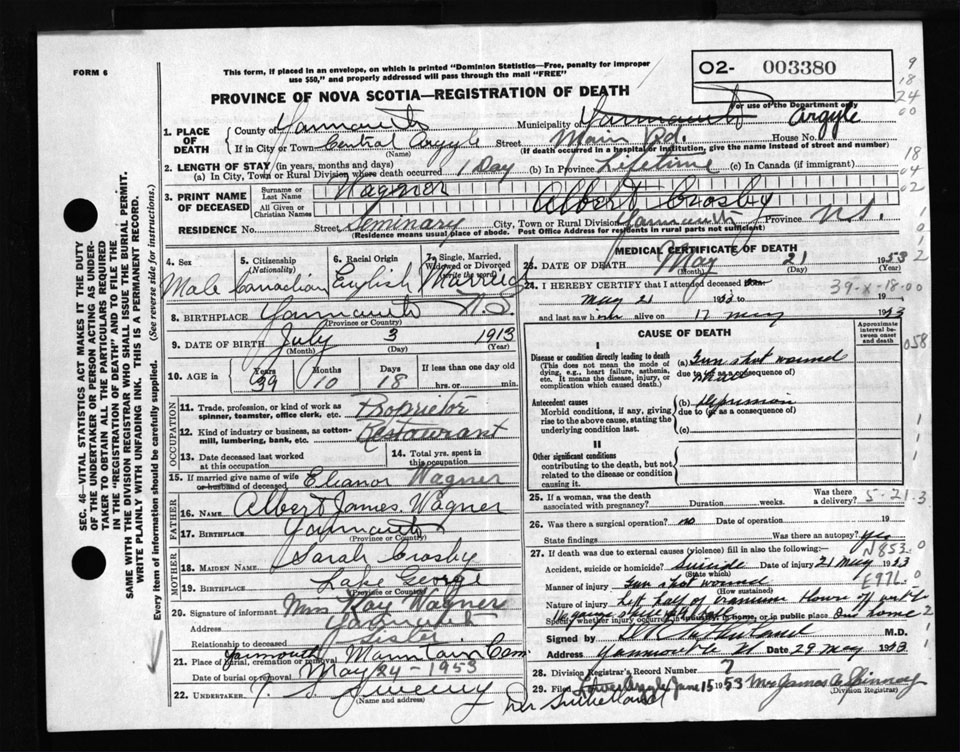 FORM 6
This form, if placed in an envelope, on which is printed "Dominion Statistics—Free, penalty for improper
use $50," and properly addressed will pass through the mail "FREE"
PROVINCE OF NOVA SCOTIA—REGISTRATION OF DEATH
O2- 003380
For use of the Department only
9
18
24
00
18
04
02
1. PLACE OF DEATH
County of Yarmouth Municipality of Yarmouth Argyle
If in City or Town Central Argyle Street Main Rd. House No.
(Name) (If death occurred in a hospital or institution, give the name instead of street and number)
2. LENGTH OF STAY (in years, months and days)
(a) In City, Town or Rural Division where death occurred 1 Day (b) In Province Lifetime (c) In Canada (if immigrant)
3. PRINT NAME OF DECEASED
Surname or Last Name Wagner
All Given or Christian Names Albert Crosby
RESIDENCE No. Street Seminary City, Town or Rural Division Yarmouth Province N.S.
(Residence means usual place of abode. Post Office Address for residents in rural parts not sufficient)
4. Sex 5. Citizenship (Nationality) 6. Racial Origin 7. Single, Married, Widowed or Divorced (write the word)
Male Canadian English Married
8. BIRTHPLACE Yarmouth N.S.
(Province or Country)
9. DATE OF BIRTH July 3 1913
(Month) (Day) (Year)
10. AGE in Years Months Days If less than one day old
39 10 18 hrs. or min.
OCCUPATION
11. Trade, profession, or kind of work as spinner, teamster, office clerk, etc. Proprietor
12. Kind of industry or business, as cotton-mill, lumbering, bank, etc. Restaurant
13. Date deceased last worked at this occupation 14. Total yrs. spent in this occupation
15. If married give name of wife or husband of deceased Eleanor Wagner
FATHER
16. Name Albert James Wagner
17. BIRTHPLACE Yarmouth
(Province or Country)
MOTHER
18. MAIDEN NAME Sarah Crosby
19. BIRTHPLACE Lake George
(Province or Country)
20. Signature of informant Mrs Kay Wagner
Address Yarmouth
Relationship to deceased Sister
21. Place of burial, cremation or removal Yarmouth Mountain Cem
Date of burial or removal May 24 - 1953
22. UNDERTAKER Sweeny
(Name and address)
Dr Sutherland
MEDICAL CERTIFICATE OF DEATH
23. DATE OF DEATH May 21 1953
(Month) (Day) (Year)
24. I HEREBY CERTIFY that I attended deceased from
May 21 1953 39-X-18-00 19
and last saw him alive on 17 May 1953
CAUSE OF DEATH
Approximate interval between onset and death
058
I
Disease or condition directly leading to death
(This does not mean the mode of dying, e.g., heart failure, asthenia, etc. It means the disease, injury, or complication which caused death.)
(a) Gun shot wound
due to (or as a consequence of)
Antecedent causes
Morbid conditions, if any, giving rise to the above cause, stating the underlying condition last.
(b) Depression
due to (or as a consequence of)
(c)
II
Other significant conditions
contributing to the death, but not related to the disease or condition causing it.
25. If a woman, was the death associated with pregnancy? Duration weeks. Was there a delivery? 5-21-3
26. Was there a surgical operation? no Date of operation 19
State findings Was there an autopsy? Yes
27. If death was due to external causes (violence) fill in also the following:— N853.0
Accident, suicide or homicide? Suicide Date of injury 21 May 1953
(State which)
Manner of injury Gun shot wound E976.0
(How sustained)
Nature of injury left half of cranium
Specify whether injury occurred in industry, in home, or in public place Own home
Signed by M.D.
Address Yarmouth Date 29 May 1953
28. Division Registrar's Record Number 7
29. Filed Lower Argyle June 15 1953 Mrs James C Spinney
(Division Registrar)
SEC. 46—VITAL STATISTICS ACT MAKES IT THE DUTY
OF THE UNDERTAKER OR PERSON ACTING AS UNDER-
TAKER TO OBTAIN ALL THE PARTICULARS REQUIRED
IN THE "REGISTRATION OF DEATH" AND TO FILE THE
SAME WITH THE DIVISION REGISTRAR WHO SHALL ISSUE THE BURIAL PERMIT.
WRITE PLAINLY WITH UNFADING INK. THIS IS A PERMANENT RECORD.
Every item of information should be carefully supplied. (See reverse side for instructions.)